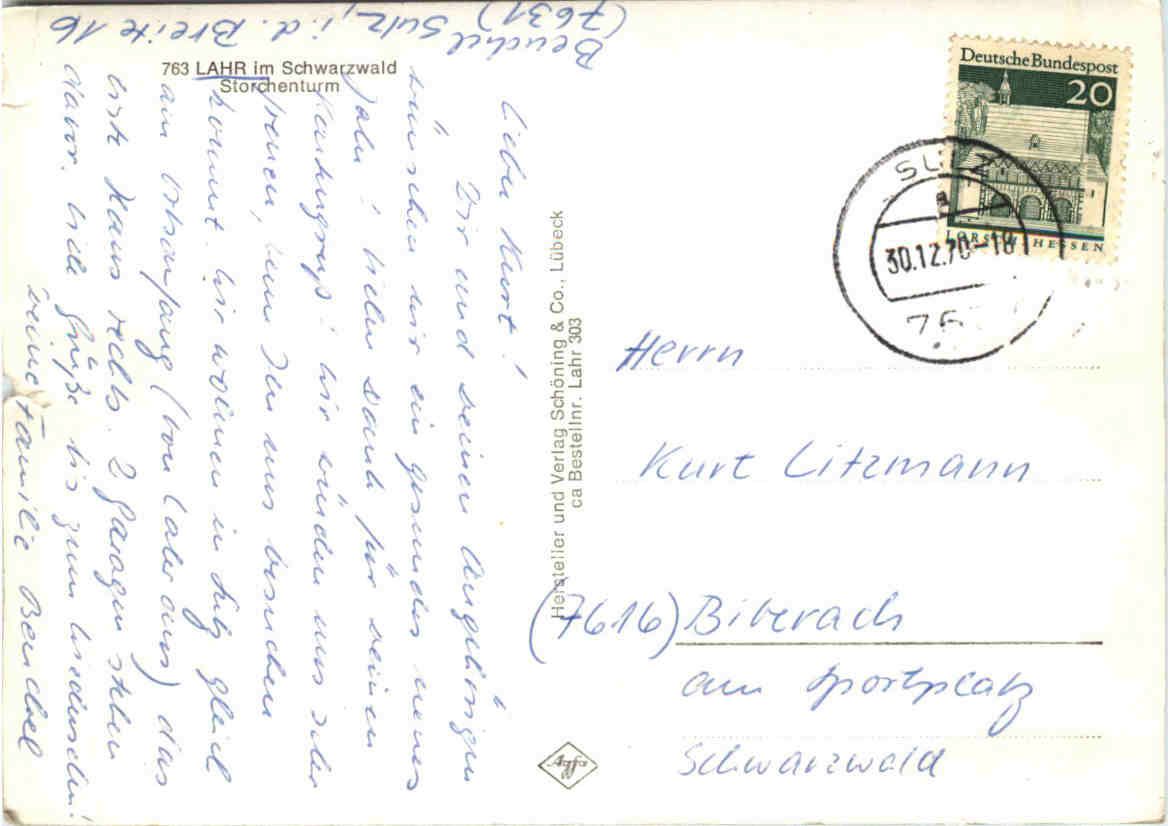 Beuchel Sulz, i.d. Breite 16
(7631)
763 LAHR im Schwarzwald
Storchenturm
Lieber Kurt!
Dir und Deinen Angehörigen
wünschen wir ein gesundes neues
Jahr! Vielen Dank für Deinen
Kartengruß! Wir würden uns sehr
freuen, wenn Du uns besuchen
kommst. Wir wohnen in Sulz gleich
am Ortsanfang (von Lahr aus) das
erste Haus rechts. 2 Garagen stehen
davor. Viele Grüße bis zum Wiedersehen!
Deine Familie Beuchel
Hersteller und Verlag Schöning & Co., Lübeck
ca Bestellnr. Lahr 303
Agfa
Deutsche Bundespost
20
LORSCH/HESSEN
SULZ
a
30.12.70-18
76
Herrn
Kurt Litzmann
(7616) Biberach
am Sportplatz
Schwarzwald